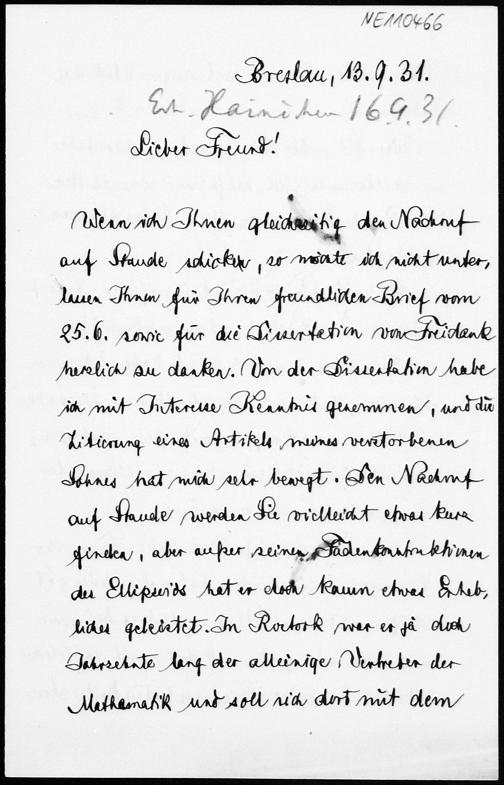 NE110466
Breslau, 13.9.31.
Erh. Hainichen 16.9.31.
Lieber Freund!
Wenn ich Ihnen gleichzeitig den Nachruf
auf Staude schicke, so möchte ich nicht unter,
lassen Ihnen für Ihren freundlichen Brief vom
25.6. sowie für die Dissertation von Freidank
herzlich zu danken. Von der Dissertation habe
ich mit Interesse Kenntnis genommen, und die
Zitierung eines Artikels meines verstorbenen
Sohnes hat mich sehr bewegt. Den Nachruf
auf Staude werden Sie vielleicht etwas kurz
finden, aber außer seinen Fadenkonstruktionen
des Ellipsoids hat er doch kaum etwas Erheb,
liches geleistet. In Rostock war er ja doch
Jahrzehnte lang der alleinige Vertreter der
Mathematik und soll sich dort mit dem